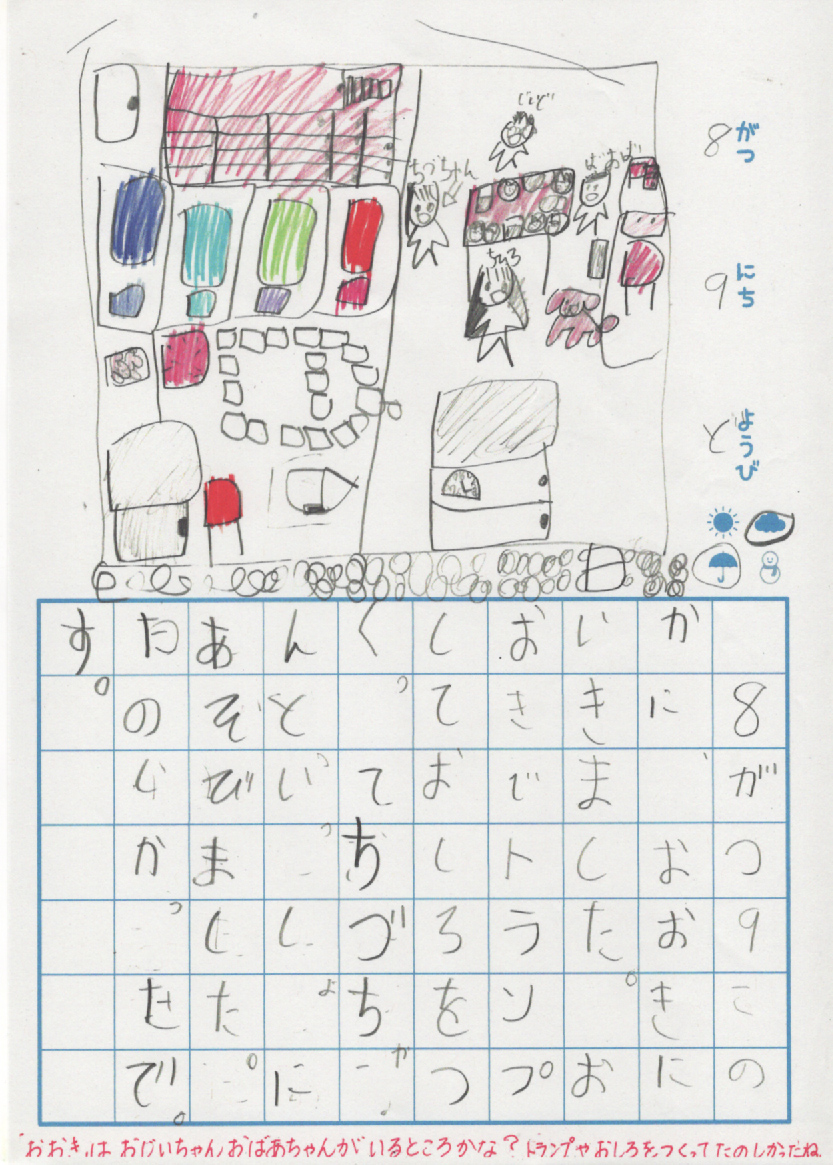 8がつ
9にち
どようび
ちづちゃん
ばあば
8がつ9この
かに、おおきに
いきました。お
おきでトランプ
しておしろをつ
くってちづちゃ
んといっしょに
あそびました。
たのしかったで
す。
「おおき」は おじいちゃんおばあちゃんがいるところかな？トランプやおしろをつくってたのしかったね